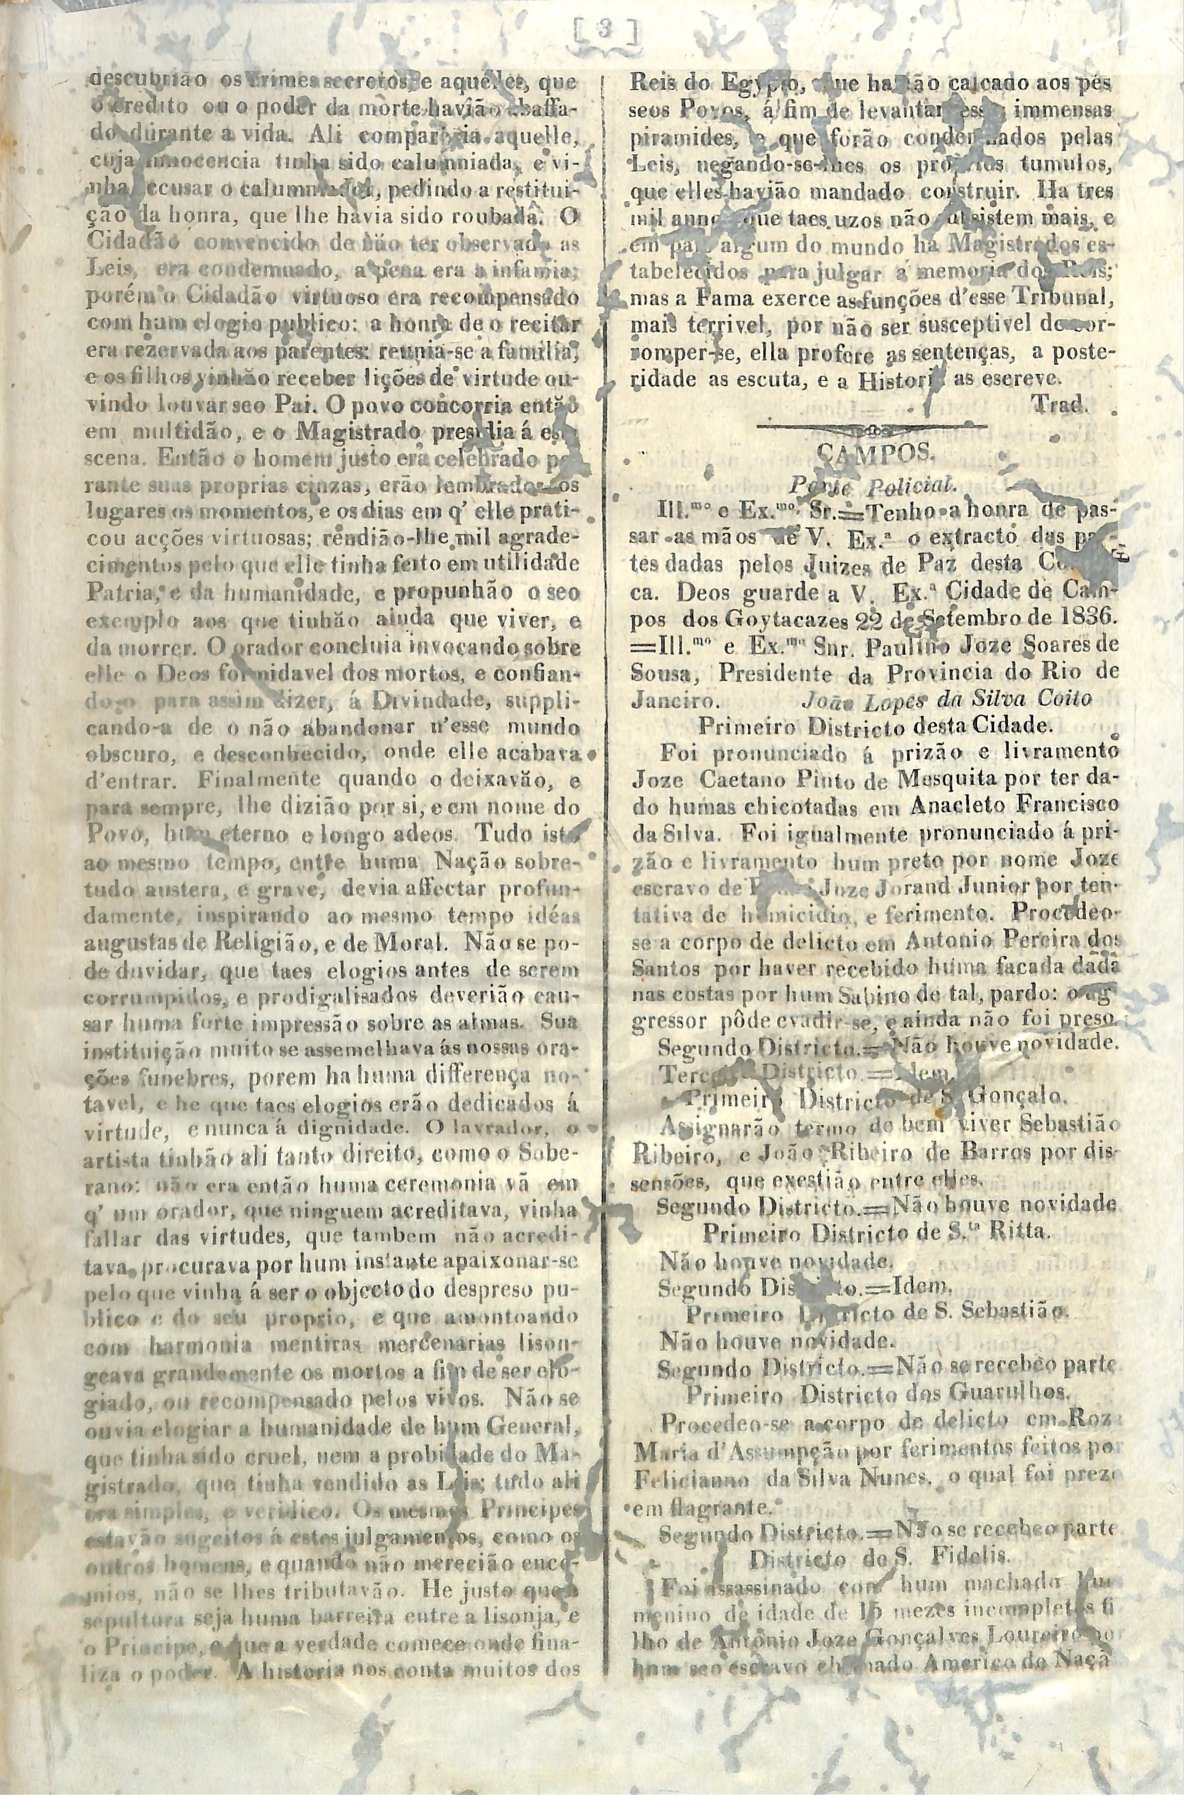 [ 3 ]
descubrião os crimes secretos, e aquelles, que
o credito ou o poder da morte havião abaffa-
do durante a vida. Ali comparecia aquelle,
cuja innocencia tinha sido calumniada, e vi-
nha accusar o calumniador, pedindo a restitui-
ção da honra, que lhe havia sido roubada. O
Cidadão convencido de não ter observado as
Leis, era condemnado, a pena era a infamia;
porém o Cidadão virtuoso era recompensado
com hum elogio publico: a honra de o recitar
era rezervada aos parentes: reunia-se a familia,
e os filhos vinhão receber lições de virtude ou-
vindo louvar seo Pai. O povo concorria então
em multidão, e o Magistrado presidia á esta
scena. Então o homem justo era celebrado pe-
rante suas proprias cinzas, erão lembrados os
lugares os momentos, e os dias em q' elle prati-
cou acções virtuosas; rendião-lhe mil agrade-
cimentos pelo que elle tinha feito em utilidade
Patria, e da humanidade, e propunhão o seo
exemplo aos que tinhão ainda que viver, e
da morrer. O orador concluia invocando sobre
elle o Deos formidavel dos mortos, e confian-
do-o para assim dizer, á Divindade, suppli-
cando-a de o não abandonar n'esse mundo
obscuro, e desconhecido, onde elle acabava
d'entrar. Finalmente quando o deixavão, e
para sempre, lhe dizião por si, e em nome do
Povo, hum eterno e longo adeos. Tudo isto
ao mesmo tempo, entre huma Nação sobre-
tudo austera, e grave, devia affectar profun-
damente, inspirando ao mesmo tempo idéas
augustas de Religião, e de Moral. Não se po-
de duvidar, que taes elogios antes de serem
corrumpidos, e prodigalisados deverião cau-
sar huma forte impressão sobre as almas. Sua
instituição muito se assemelhava ás nossas ora-
ções funebres, porem ha huma differença no-
tavel, e he que taes elogios erão dedicados á
virtude, e nunca á dignidade. O lavrador, o
artista tinhão ali tanto direito, como o Sobe-
rano: não era então huma ceremonia vã em
q' um orador, que ninguem acreditava, vinha
fallar das virtudes, que tambem não acredi-
tava, procurava por hum instante apaixonar-se
pelo que vinha á ser o objecto do despreso pu-
blico e do seu proprio, e que amontoando
com harmonia mentiras mercenarias lison-
geava grandemente os mortos a fim de ser elo-
giado, ou recompensado pelos vivos. Não se
ouvia elogiar a humanidade de hum General,
que tinha sido cruel, nem a probidade do Ma-
gistrado, que tinha vendido as Leis; tudo ali
era simples, e veridico. Os mesmos Principes
estavão sugeitos á estes julgamentos, como os
outros homens, e quando não merecião enco-
mios, não se lhes tributavão. He justo que a
sepultura seja huma barreira entre a lisonja, e
o Principe, e que a verdade comece onde fina-
liza o poder. A historia nos conta muitos dos
Reis do Egypto, que havião calcado aos pés
seos Povos, á fim de levantar essas immensas
piramides, e que forão condemnados pelas
Leis, negando-se-lhes os proprios tumulos,
que elles havião mandado construir. Ha tres
mil annos que taes uzos não subsistem mais, e
em paiz algum do mundo ha Magistrados es-
tabelecidos para julgar a memoria dos Reis;
mas a Fama exerce as funções d'esse Tribunal,
mais terrivel, por não ser susceptivel de cor-
romper-se, ella profere as sentenças, a poste-
ridade as escuta, e a Historia as escreve.
Trad.
CAMPOS.
Parte Policial.
Ill.mo e Ex.mo Sr.=Tenho a honra de pas-
sar as mãos de V. Ex.a o extracto das par-
tes dadas pelos Juizes de Paz desta Comar-
ca. Deos guarde a V. Ex.a Cidade de Cam-
pos dos Goytacazes 22 de Setembro de 1836.
=Ill.mo e Ex.mo Snr. Paulino Joze Soares de
Sousa, Presidente da Provincia do Rio de
Janeiro. João Lopes da Silva Coito
Primeiro Districto desta Cidade.
Foi pronunciado á prizão e livramento
Joze Caetano Pinto de Mesquita por ter da-
do humas chicotadas em Anacleto Francisco
da Silva. Foi igualmente pronunciado á pri-
zão e livramento hum preto por nome Joze
escravo de Joze Jorand Junior por ten-
tativa de homicidio, e ferimento. Procedeo-
se a corpo de delicto em Antonio Pereira dos
Santos por haver recebido huma facada dada
nas costas por hum Sabino de tal, pardo: o ag-
gressor pôde evadir-se, e ainda não foi preso.
Segundo Districto.=Não houve novidade.
Terceiro Districto.=Idem.
Primeiro Districto de S. Gonçalo.
Assignarão termo de bem viver Sebastião
Ribeiro, e João Ribeiro de Barros por dis-
sensões, que exestião entre elles.
Segundo Districto.=Não houve novidade
Primeiro Districto de S.ta Ritta.
Não houve novidade.
Segundo Districto.=Idem.
Primeiro Districto de S. Sebastião.
Não houve novidade.
Segundo Districto.=Não se recebeo parte
Primeiro Districto dos Guarulhos.
Procedeo-se a corpo de delicto em Roza
Maria d'Assumpção por ferimentos feitos por
Felicianno da Silva Nunes, o qual foi prezo
em flagrante.
Segundo Districto.=Não se recebeo parte
Districto de S. Fidelis.
Foi assassinado com hum machado hum
menino de idade de 15 mezes incompletos fi
lho de Antonio Joze Gonçalves Loureiro por
hum seo escravo chamado Americo de Naçã